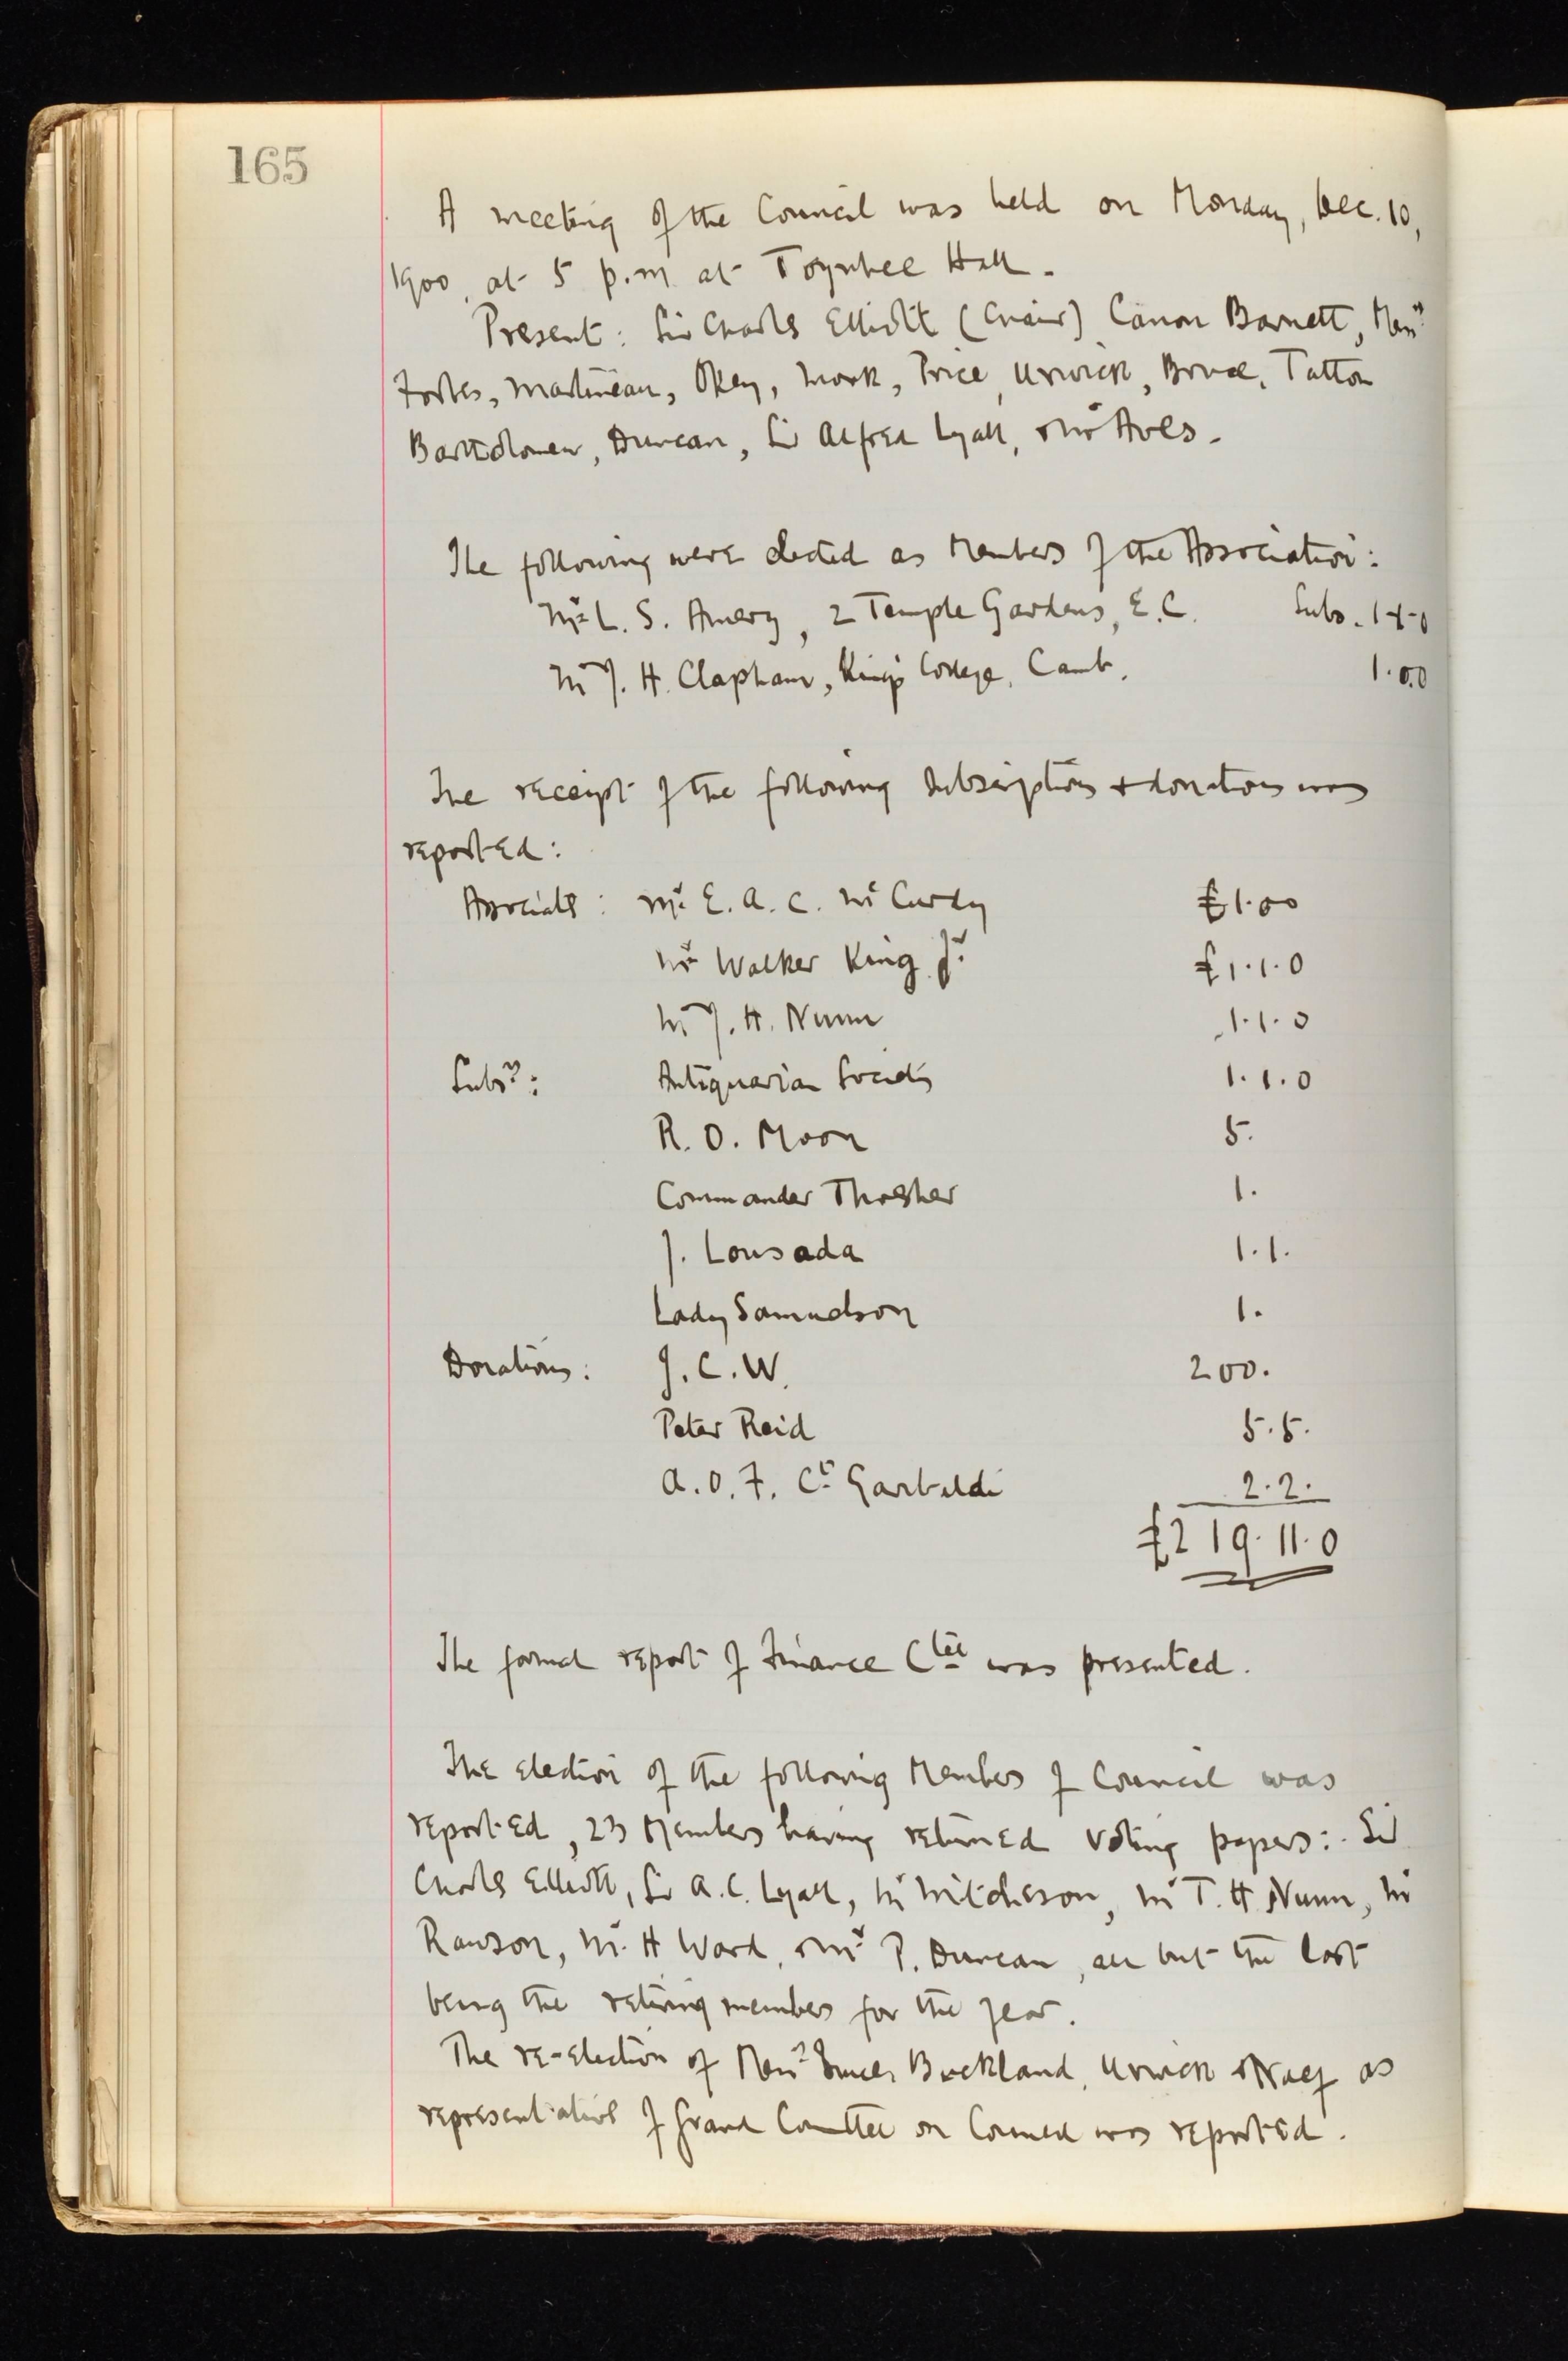 165
A meeting of the Council was held on Monday, Dec. 10,
1900, at 5 p.m. at Toynbee Hall.
Present: Sir Charles Elliott (Chair) Canon Barnett, Messrs
Forbes, Martineau, Okey, Monk, Price, Urwick, Bruce, Tatton
Bartholomew, Duncan, Sir Alfred Lyall, & Mr Aves.
The following were elected as Members of the Association:
Mr L. S. Amery, 2 Temple Gardens, E.C. Subs. 1-1-0
Mr J. H. Clapham, King's College, Camb. 1.0.0
The receipt of the following subscriptions & donations was
reported:
Associate: Mr E. A. C. McCurdy £1.00
Mr Walker King Jr. £1.1.0
Mr J. H. Nunn 1.1.0
Subs: Antiquarian Society 1.1.0
R. O. Moon 5.
Commander Thresher 1.
J. Lousada 1.1.
Lady Samuelson 1.
Donations: J. C. W. 200.
Peter Reid 5.5.
A. O. F. Ct Garibaldi 2.2.
£219.11.0
The formal report of Finance Ctee was presented.
The election of the following Members of Council was
reported, 23 Members having returned voting papers: Sir
Charles Elliott, Sir A. C. Lyall, Mr Mitcheson, Mr T. H. Nunn, Mr
Rawson, Mr. H Ward, & Mr P. Duncan, all but the last
being the retiring members for the year.
The re-election of Messrs Buckland, Urwick & as
representatives of Grand Comttee on Council was reported.